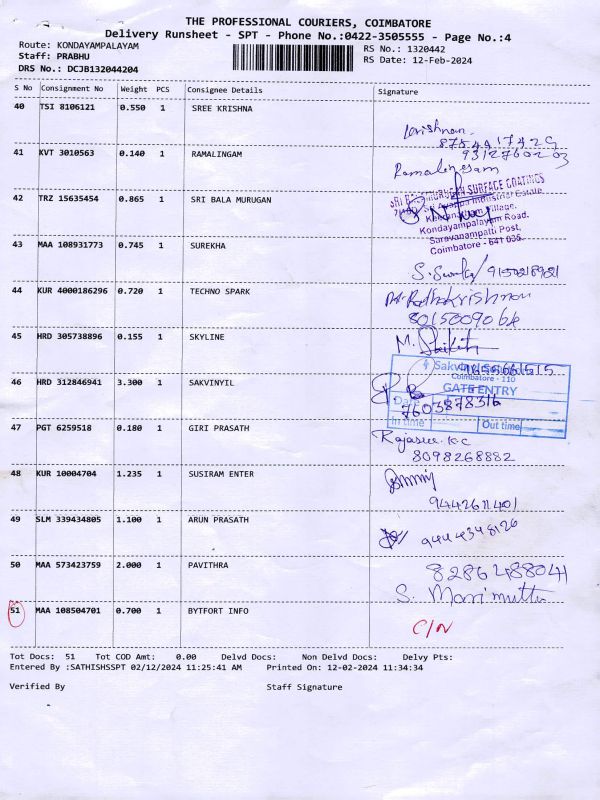 THE PROFESSIONAL COURIERS, COIMBATORE
Delivery Runsheet - SPT - Phone No.:0422-3505555 - Page No.:4
Route: KONDAYAMPALAYAM
Staff: PRABHU
DRS No.: DCJB132044204
RS No.: 1320442
RS Date: 12-Feb-2024
S No Consignment No Weight PCS Consignee Details Signature
40 TSI 8106121 0.550 1 SREE KRISHNA
41 KVT 3010563 0.140 1 RAMALINGAM
Ramalingam
42 TRZ 15635454 0.865 1 SRI BALA MURUGAN
SURFACE COATINGS
Industrial Estate,
Village,
Kondayampalayam Road,
Saravanampatti Post,
Coimbatore - 641 035.
43 MAA 108931773 0.745 1 SUREKHA
44 KUR 4000186296 0.720 1 TECHNO SPARK
8015009064
45 HRD 305738896 0.155 1 SKYLINE
46 HRD 312846941 3.300 1 SAKVINYIL
Coimbatore - 110
GATE ENTRY
Date
7603878316
In time Out time
47 PGT 6259518 0.180 1 GIRI PRASATH
8098268882
48 KUR 10004704 1.235 1 SUSIRAM ENTER
49 SLM 339434805 1.100 1 ARUN PRASATH
9444348126
50 MAA 573423759 2.000 1 PAVITHRA
8286488041
S. Marimuttu
51 MAA 108504701 0.700 1 BYTFORT INFO
C/N
Tot Docs: 51 Tot COD Amt: 0.00 Delvd Docs: Non Delvd Docs: Delvy Pts:
Entered By :SATHISHSSPT 02/12/2024 11:25:41 AM Printed On: 12-02-2024 11:34:34
Verified By Staff Signature